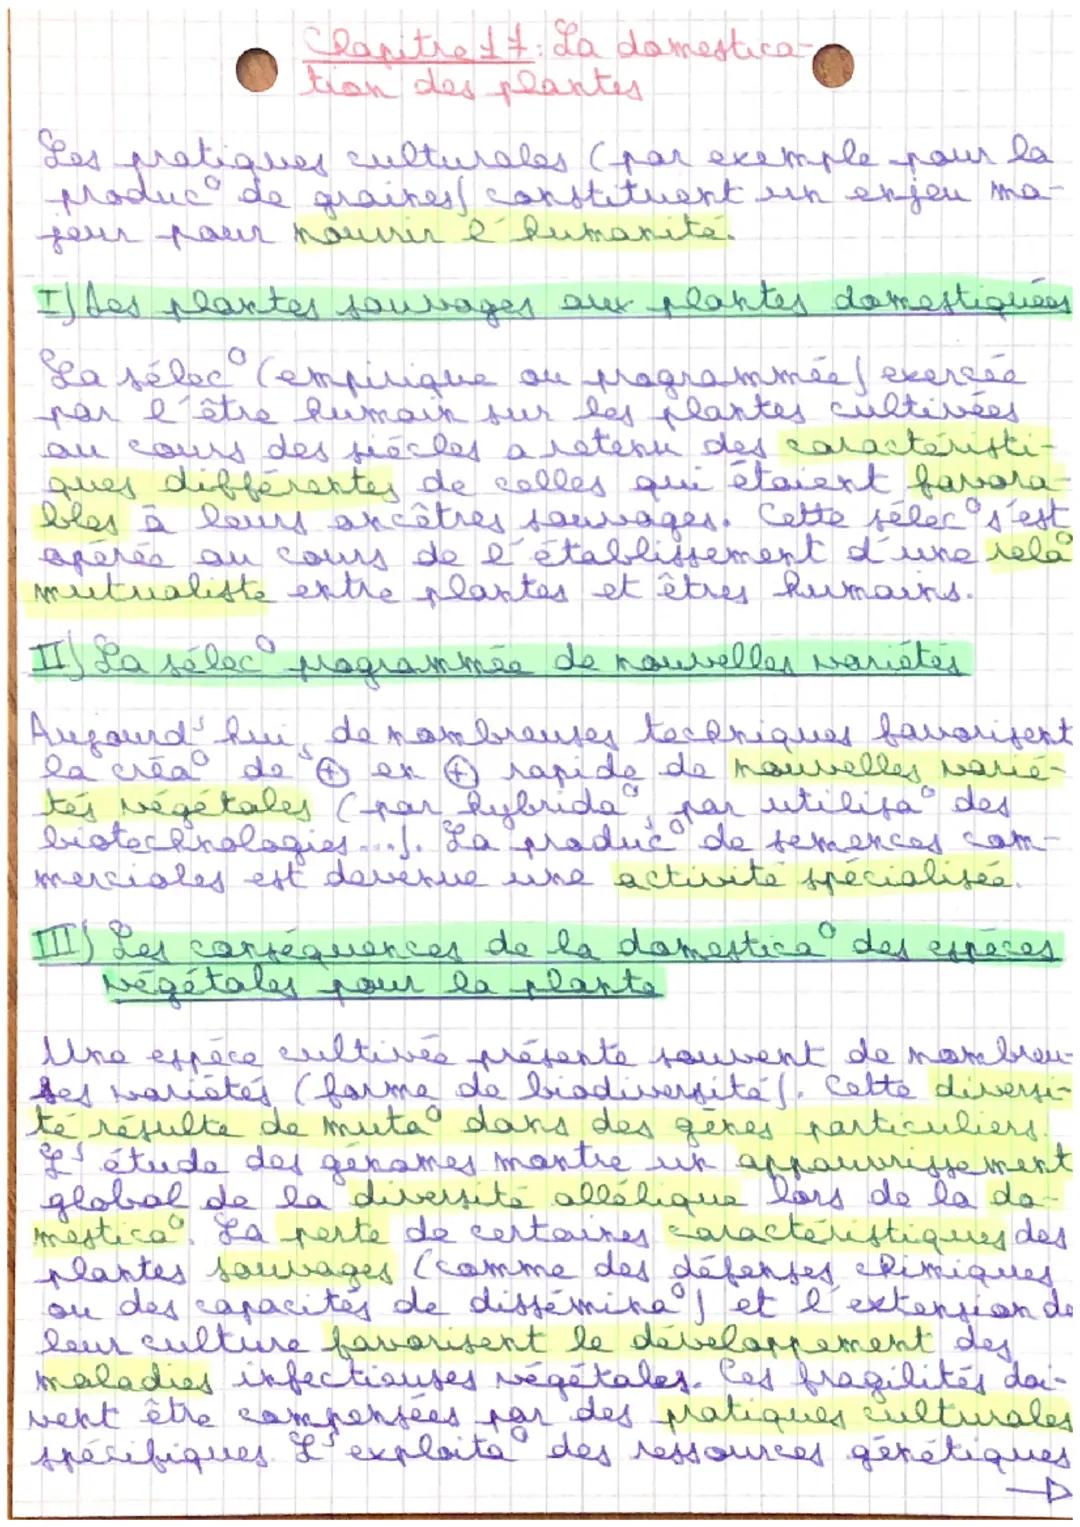 Chapitre 17: La domestica-
tion des plantes
Les pratiques culturales (par exemple pour la
produc° de graines) constituent un enjeu ma-
jeur pour nourrir l'humanité.
I) Des plantes sauvages aux plantes domestiquées
La sélec° (empirique ou programmée) exercée
par l'être humain sur les plantes cultivées
au cours des siècles a retenu des caractéristi-
ques différentes de celles qui étaient favora-
bles à leurs ancêtres sauvages. Cette sélec° s'est
opérée au cours de l'établissement d'une rela°
mutualiste entre plantes et êtres humains.
II) La sélec° programmée de nouvelles variétés
Aujourd'hui, de nombreuses techniques favorisent
la créa° de ⊕ en ⊕ rapide de nouvelles varié-
tés végétales (par hybrida°, par utilisa° des
biotechnologies...). La produc° de semences com-
merciales est devenue une activité spécialisée.
III) Les conséquences de la domestica° des espèces
végétales pour la plante
Une espèce cultivée présente souvent de nombreu-
ses variétés (forme de biodiversité). Cette diversi-
té résulte de muta° dans des gènes particuliers.
L'étude des génomes montre un appauvrissement
global de la diversité allélique lors de la do-
mestica°. La perte de certaines caractéristiques des
plantes sauvages (comme des défenses chimiques
ou des capacités de dissémina°) et l'extension de
leur culture favorisent le développement des
maladies infectieuses végétales. Ces fragilités doi-
vent être compensées par des pratiques culturales
spécifiques. L'exploita° des ressources génétiques
→